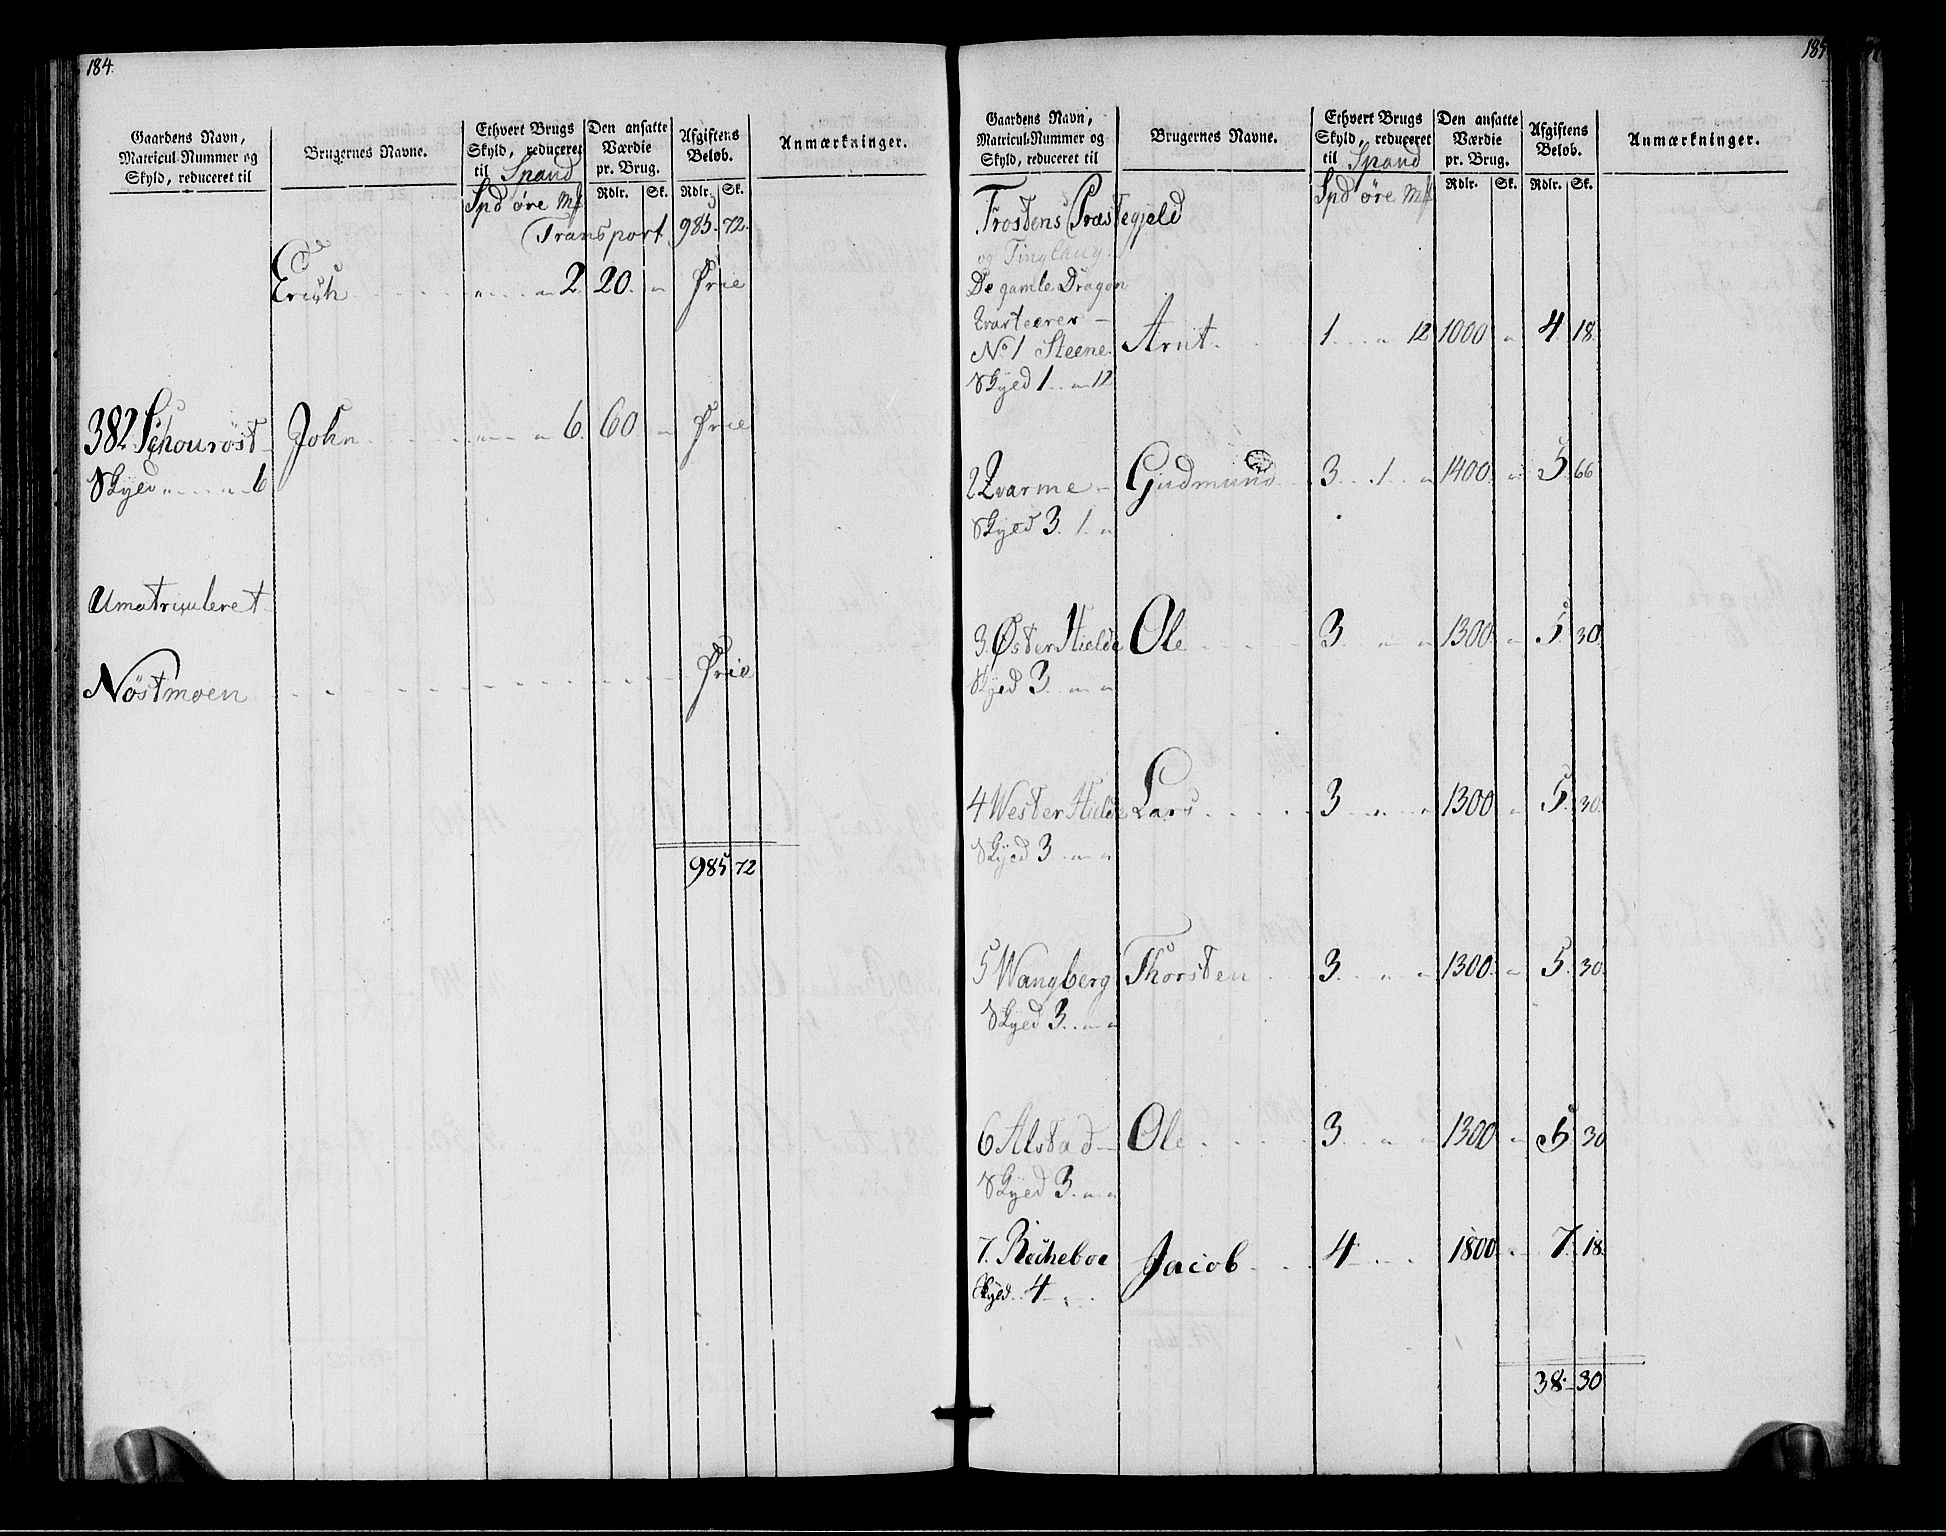 184.
Gaardens Navn,
Matricul-Nummer og
Skyld, reduceret til
Brugernes Navne.
Ethvert Brugs
Skyld, reduceret
til Spand
Den ansatte
Værdie
pr. Brug.
Afgiftens
Beløb.
Anmærkninger.
Spd øre Mk
Rdlr. Sk. Rdlr. Sk.
Transport 985. 72.
Erich 2. 20. Frie
382 Schourøst John 6. 60. Frie
Skyld 6
Umatriculeret
Nøstmoen Frie
985 72
185
Gaardens Navn,
Matricul-Nummer og
Skyld, reduceret til
Brugernes Navne.
Ethvert Brugs
Skyld, reduceret
til Spand
Den ansatte
Værdie
pr. Brug.
Afgiftens
Beløb.
Anmærkninger.
Spd øre Mk
Rdlr. Sk. Rdlr. Sk.
Frostens Præstegjeld
og Tinglaug.
De gamle Dragon
Qvarteerer
No 1 Steene Arnt 1 12 1000 4. 18.
Skyld 1 12
2 Qvarme Gudmund 3. 1 1400 5. 66
Skyld 3. 1
3. Øster Hielde Ole 3 1300. 5. 30.
Skyld 3
4 Wester Hielde Lars 3 1300 5. 30.
Skyld 3
5 Wangberg Thorsten 3. 1300. 5. 30.
Skyld 3
6 Alstad Ole 3 1300 5. 30
Skyld 3
7. Recheboe Jacob 4 1800. 7. 18.
Skyld 4
38. 30